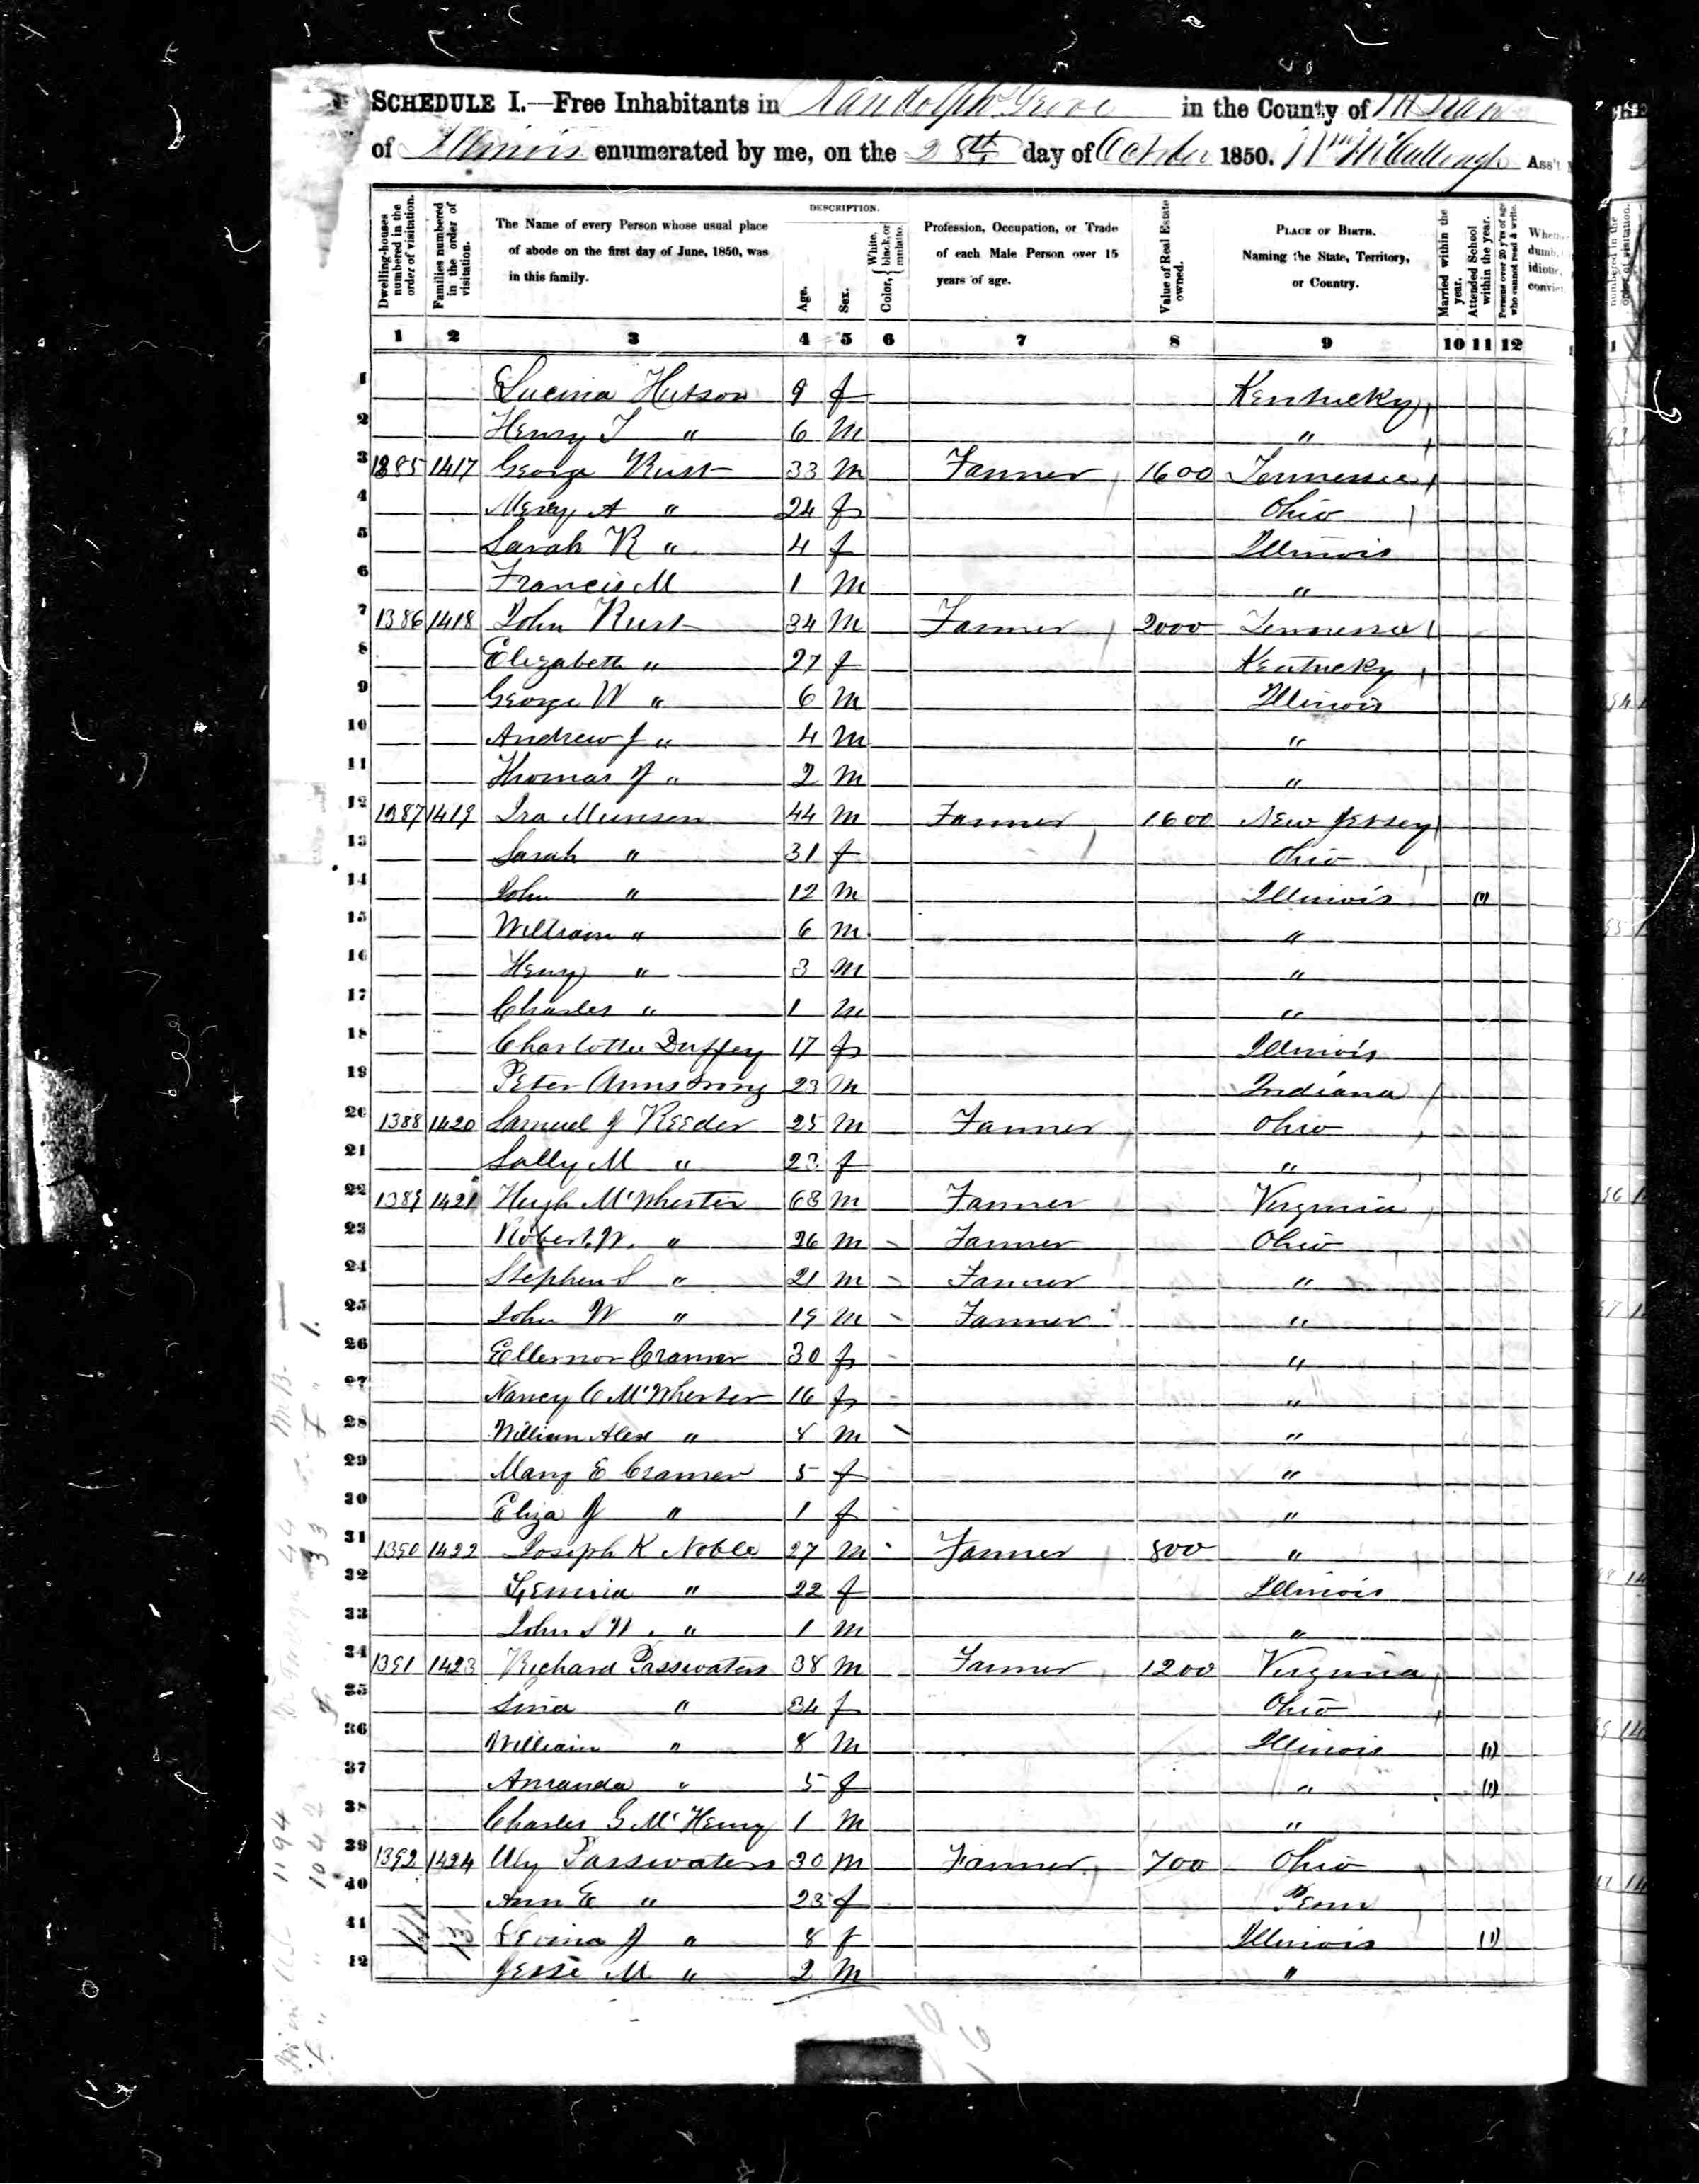 SCHEDULE I.—Free Inhabitants in Randolph Grove in the County of McLean
of Illinois enumerated by me, on the 28th day of October 1850. Wm McCullough Ass't
Dwelling-houses numbered in the order of visitation.
Families numbered in the order of visitation.
The Name of every Person whose usual place of abode on the first day of June, 1850, was in this family.
DESCRIPTION.
Age.
Sex.
Color, { White, black, or mulatto.
Profession, Occupation, or Trade of each Male Person over 15 years of age.
Value of Real Estate owned.
PLACE OF BIRTH. Naming the State, Territory, or Country.
Married within the year.
Attended School within the year.
Persons over 20 y'rs of age who cannot read & write.
1 2 3 4 5 6 7 8 9 10 11 12
1 Lucina Hutson 9 f Kentucky
2 Henry T " 6 M "
3 1385 1417 George Rust 33 M Farmer 1600 Tennessee
4 Mary A " 24 f Ohio
5 Sarah R " 4 f Illinois
6 Francis M 1 M "
7 1386 1418 John Rust 34 M Farmer 2000 Tennessee
8 Elizabeth " 27 f Kentucky
9 George W " 6 M Illinois
10 Andrew J " 4 M "
11 Thomas J " 2 M "
12 1387 1419 Ira Munson 44 M Farmer 1600 New Jersey
13 Sarah " 31 f Ohio
14 John " 12 M Illinois (1)
15 William " 6 M "
16 Henry " 3 M "
17 Charles " 1 M "
18 Charlotte Duffey 17 f Illinois
19 Peter Armstrong 23 M Indiana
20 1388 1420 Samuel J Reeder 25 M Farmer Ohio
21 Sally M " 23 f "
22 1389 1421 Hugh McWherter 68 M Farmer Virginia
23 Robert W. " 26 M Farmer Ohio
24 Stephen S " 21 M Farmer "
25 John W " 19 M Farmer "
26 Ellernor Cramer 30 f "
27 Nancy C McWherter 16 f "
28 William Alex " 8 M "
29 Mary E Cramer 5 f "
30 Eliza J " 1 f "
31 1390 1422 Joseph K Noble 27 M Farmer 800 "
32 " 22 f Illinois
33 John S W. " 1 M "
34 1391 1423 Richard Passwaters 38 M Farmer 1200 Virginia
35 Sina " 34 f Ohio
36 William " 8 M Illinois (1)
37 Amanda " 5 f " (1)
38 Charles G McHenry 1 M "
39 1392 1424 Uly Passwaters 30 M Farmer 700 Ohio
40 Ann E " 23 f Penn
41 J " 8 f Illinois (1)
42 Jesse M " 2 M "